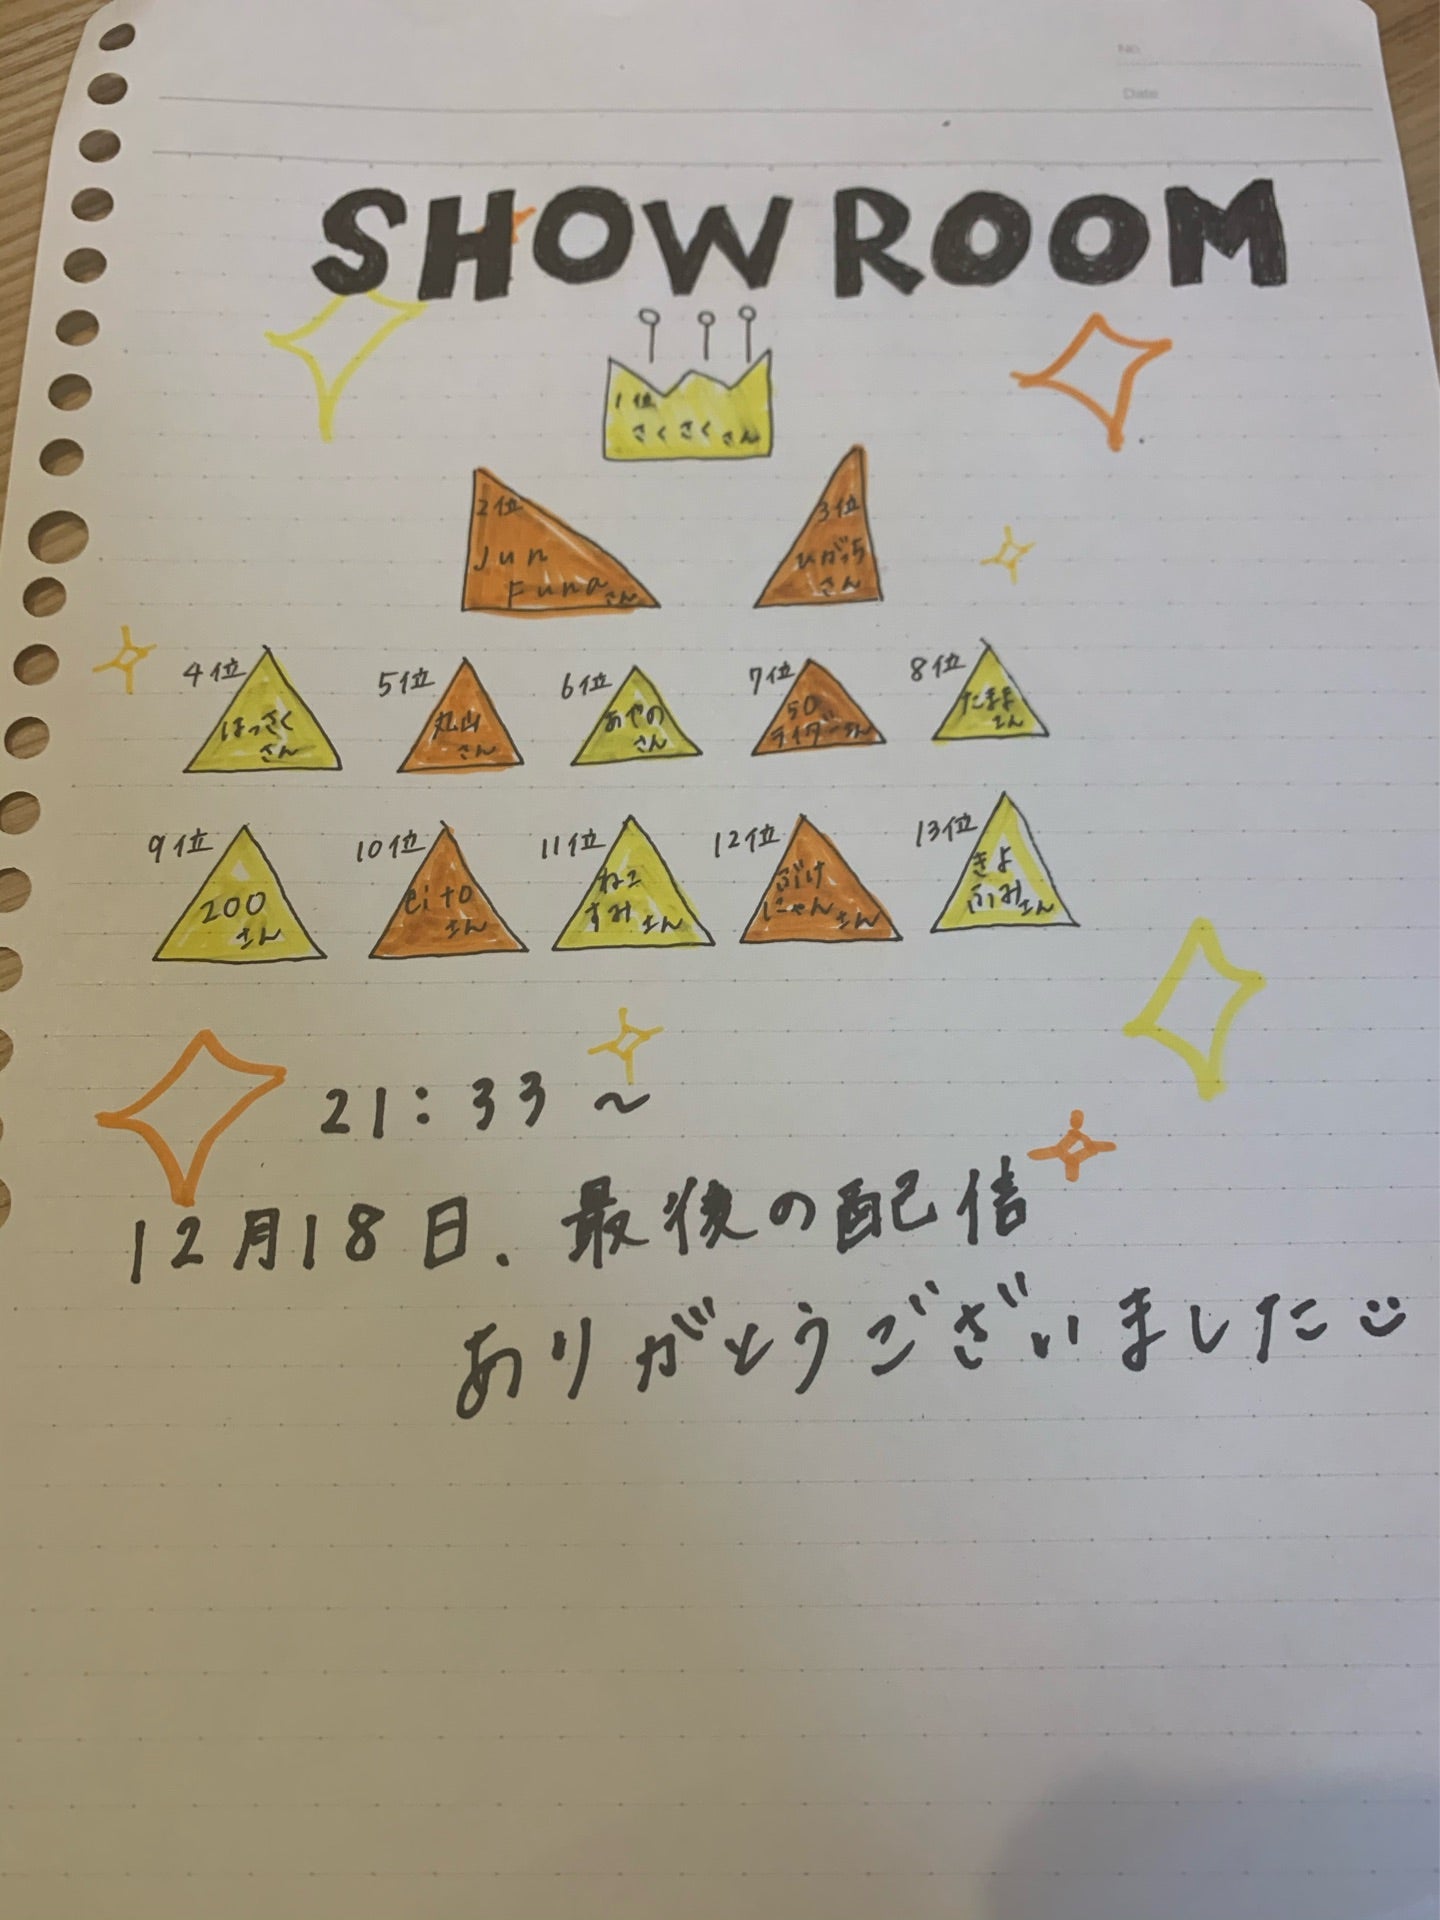 No.
Date
SHOWROOM
1位
さくさくさん
2位
Jun
Funaさん
3位
ひがっち
さん
4位
はっさく
さん
5位
丸山
さん
6位
あやの
さん
7位
50
ライダーさん
8位
たまよ
さん
9位
200
さん
10位
eito
さん
11位
ねこ
すみさん
12位
ぶけ
にゃんさん
13位
きよ
ふみさん
21:33～
12月18日、最後の配信
ありがとうございました